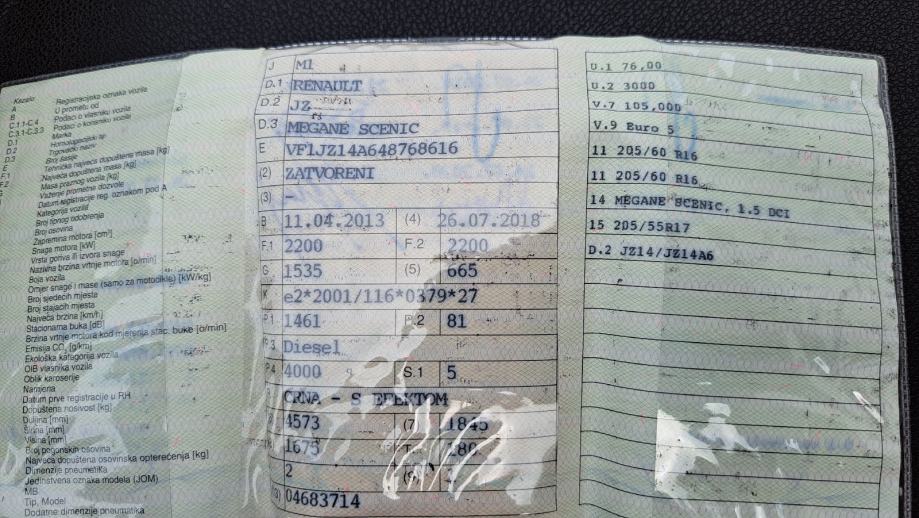 Kazalo:
A Registracijska oznaka vozila
B U prometu od
C.1.1-C.4 Podaci o vlasniku vozila
C.3.1-C.3.3 Podaci o korisniku vozila
D.1 Marka
D.2 Homologacijski tip
D.3 Trgovački naziv
E Broj šasije
F.1 Tehnička najveća dopuštena masa [kg]
F.2 Najveća dopuštena masa [kg]
G Masa praznog vozila [kg]
Važenje prometne dozvole
Datum registracije reg. oznakom pod A
Kategorija vozila
Broj tipnog odobrenja
Broj osovina
Zapremina motora [cm³]
Snaga motora [kW]
Vrsta goriva ili izvora snage
Nazivna brzina vrtnje motora [o/min]
Boja vozila
Omjer snage i mase (samo za motocikle) [kW/kg]
Broj sjedećih mjesta
Broj stajaćih mjesta
Najveća brzina [km/h]
Stacionarna buka [dB]
Brzina vrtnje motora kod mjerenja stac. buke [o/min]
Emisija CO₂ [g/km]
Ekološka kategorija vozila
OIB vlasnika vozila
Oblik karoserije
Namjena
Datum prve registracije u RH
Dopuštena nosivost [kg]
Duljina [mm]
Širina [mm]
Visina [mm]
Broj pogonskih osovina
Najveća dopuštena osovinska opterećenja [kg]
Dimenzije pneumatika
Jedinstvena oznaka modela (JOM)
MB
Tip, Model
Dodatne dimenzije pneumatika
J M1
D.1 RENAULT
D.2 JZ
D.3 MEGANE SCENIC
E VF1JZ14A648768616
(2) ZATVORENI
(3) -
B 11.04.2013 (4) 26.07.2018
F.1 2200 F.2 2200
G 1535 (5) 665
K e2*2001/116*0379*27
P.1 1461 P.2 81
P.3 Diesel
P.4 4000 S.1 5
CRNA - S EFEKTOM
4573 (7) 1845
1675
2
04683714
U.1 76,00
U.2 3000
V.7 105,000
V.9 Euro 5
11 205/60 R16
11 205/60 R16
14 MEGANE SCENIC, 1.5 DCI
15 205/55R17
D.2 JZ14/JZ14A6